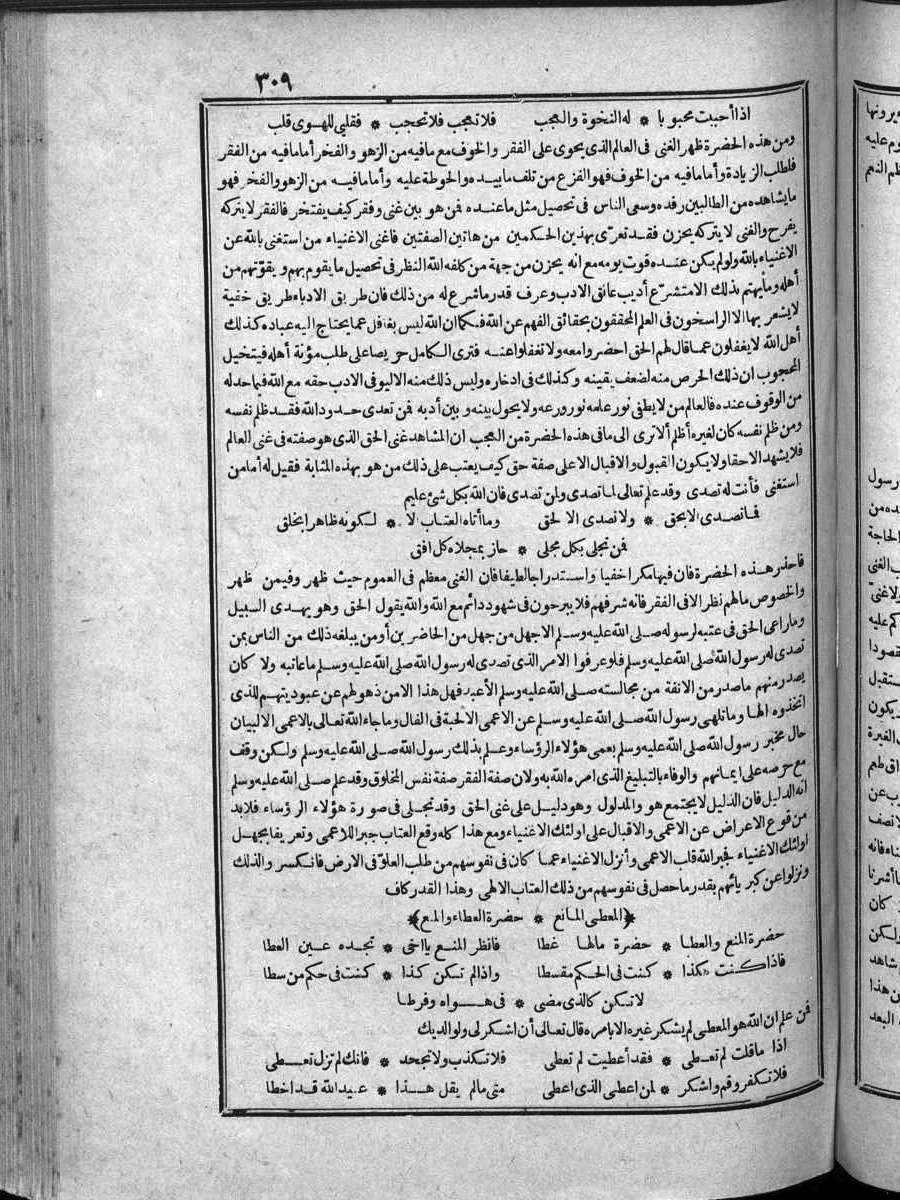 ٣٠٩
اذا أحببت محبوبا * له النخوة والعجب فلا تعجب فلا تحجب * فقلبي للهوى قلب
ومن هذه الحضرة ظهر الغنى في العالم الذي يحوي على الفقر والخوف مع مافيه من الزهو والفخر أما مافيه من الفقر
فلطلب الزيادة وأما مافيه من الخوف فهو الفزع من تلف ما بيده والحوطة عليه وأما مافيه من الزهو والفخر فهو
ما يشاهده من الطالبين رفده وسعى الناس في تحصيل مثل ما عنده فمن هو بين غنى وفقر كيف يفتخر فالفقر لا يتركه
يفرح والغنى لا يتركه يحزن فقد تعرّى بهذين الحكمين من هاتين الصفتين فاغنى الاغنياء من استغنى بالله عن
الاغنياء بالله ولو لم يكن عنده قوت يومه مع انه يحزن من جهة من كلفه الله النظر في تحصيل ما يقوم بهم ويقوّتهم من
أهله وما يهتم بذلك الا متشرّع أديب عانق الادب وعرف قدر ما شرع له من ذلك فان طريق الادباء طريق خفية
لا يشعر بها الا الراسخون في العلم المحققون بحقائق الفهم عن الله فكما ان الله ليس بغافل عما يحتاج اليه عباده كذلك
أهل الله لا يغفلون عما قال لهم الحق احضروا معه ولا تغفلوا عنه فترى الكامل حريصا على طلب مؤنة أهله فيتخيل
المحجوب ان ذلك الحرص منه لضعف يقينه وكذلك في ادخاره وليس ذلك منه الا ليوفي الادب حقه مع الله فيما حد له
من الوقوف عنده فالعالم من لا يطفي نور علمه نور ورعه ولا يحول بينه وبين أدبه فمن تعدى حدود الله فقد ظلم نفسه
ومن ظلم نفسه كان لغيره أظلم ألا ترى الى ما في هذه الحضرة من العجب ان المشاهد غنى الحق الذي هو صفته في غنى العالم
فلا يشهد الا حقا ولا يكون القبول والاقبال الا على صفة حق كيف يعتب على ذلك من هو بهذه المثابة فقيل له أما من
استغنى فأنت له تصدى وقد علم تعالى لما تصدى ولمن تصدى فان الله بكل شئ عليم
فما تصدى الا بحق * ولا تصدى الا لحق وما أتاه العتاب الا * لكونه ظاهرا بخلق
فمن تجلى بكل مجلى * حاز بمجلاه كل افق
فاحذر هذه الحضرة فان فيها مكرا خفيا واستدراجا لطيفا فان الغنى معظم في العموم حيث ظهر وفيمن ظهر
والخصوص مالهم نظر الا في الفقر فانه شرفهم فلا يبرحون في شهود دائم مع الله والله يقول الحق وهو يهدى السبيل
وما راعى الحق في عتبه لرسوله صلى الله عليه وسلم الا جهل من جهل من الحاضرين أو من يبلغه ذلك من الناس بمن
تصدى له رسول الله صلى الله عليه وسلم فلو عرفوا الامر الذي تصدى له رسول الله صلى الله عليه وسلم ما عاتبه ولا كان
يصدر منهم ما صدر من الانفة من مجالسته صلى الله عليه وسلم الأعبد فهل هذا الا من ذهولهم عن عبوديتهم للذي
اتخذوه الها وما تلهى رسول الله صلى الله عليه وسلم عن الاعمى الا لحبة في الفال وما جاء الله تعالى بالاعمى الا لبيان
حال مخبر رسول الله صلى الله عليه وسلم بعمى هؤلاء الرؤساء وعلم بذلك رسول الله صلى الله عليه وسلم ولكن وقف
مع حرصه على ايمانهم والوفاء بالتبليغ الذي امره الله به ولان صفة الفقر صفة نفس المخلوق وقد علم صلى الله عليه وسلم
انه الدليل فان الدليل لا يجتمع هو والمدلول وهو دليل على غنى الحق وقد تجلى في صورة هؤلاء الرؤساء فلا بد
من قوع الاعراض عن الاعمى والاقبال على اولئك الاغنياء ومع هذا كله وقع العتاب جبرا للاعمى وتعريفا بجهل
اولئك الاغنياء فجبر الله قلب الاعمى وأنزل الاغنياء عما كان في نفوسهم من طلب العلوّ في الارض فانكسروا لذلك
ونزلوا عن كبريائهم بقدر ما حصل في نفوسهم من ذلك العتاب الالهي وهذا القدر كاف
﴿المعطي المانع * حضرة العطاء والمنع﴾
حضرة المنع والعطا * حضرة مالها غطا فانظر المنع يا اخي * تجده عين العطا
فاذا كنت هكذا * كنت في الحكم مقسطا واذا لم تكن كذا * كنت في حكم من سطا
لا تكن كالذي مضى * في هواه وفرطا
فمن علم ان الله هو المعطي لم يشكر غيره الا بامره قال تعالى أن اشكر لى ولوالديك
اذا ما قلت لم تعطى * فقد أعطيت لم تعطى فلا تكذب ولا تجحد * فانك لم تزل تعطى
فلا تكفر وقم واشكر * لمن اعطى الذي اعطى متى مالم يقل هذا * عبيد الله قد اخطا